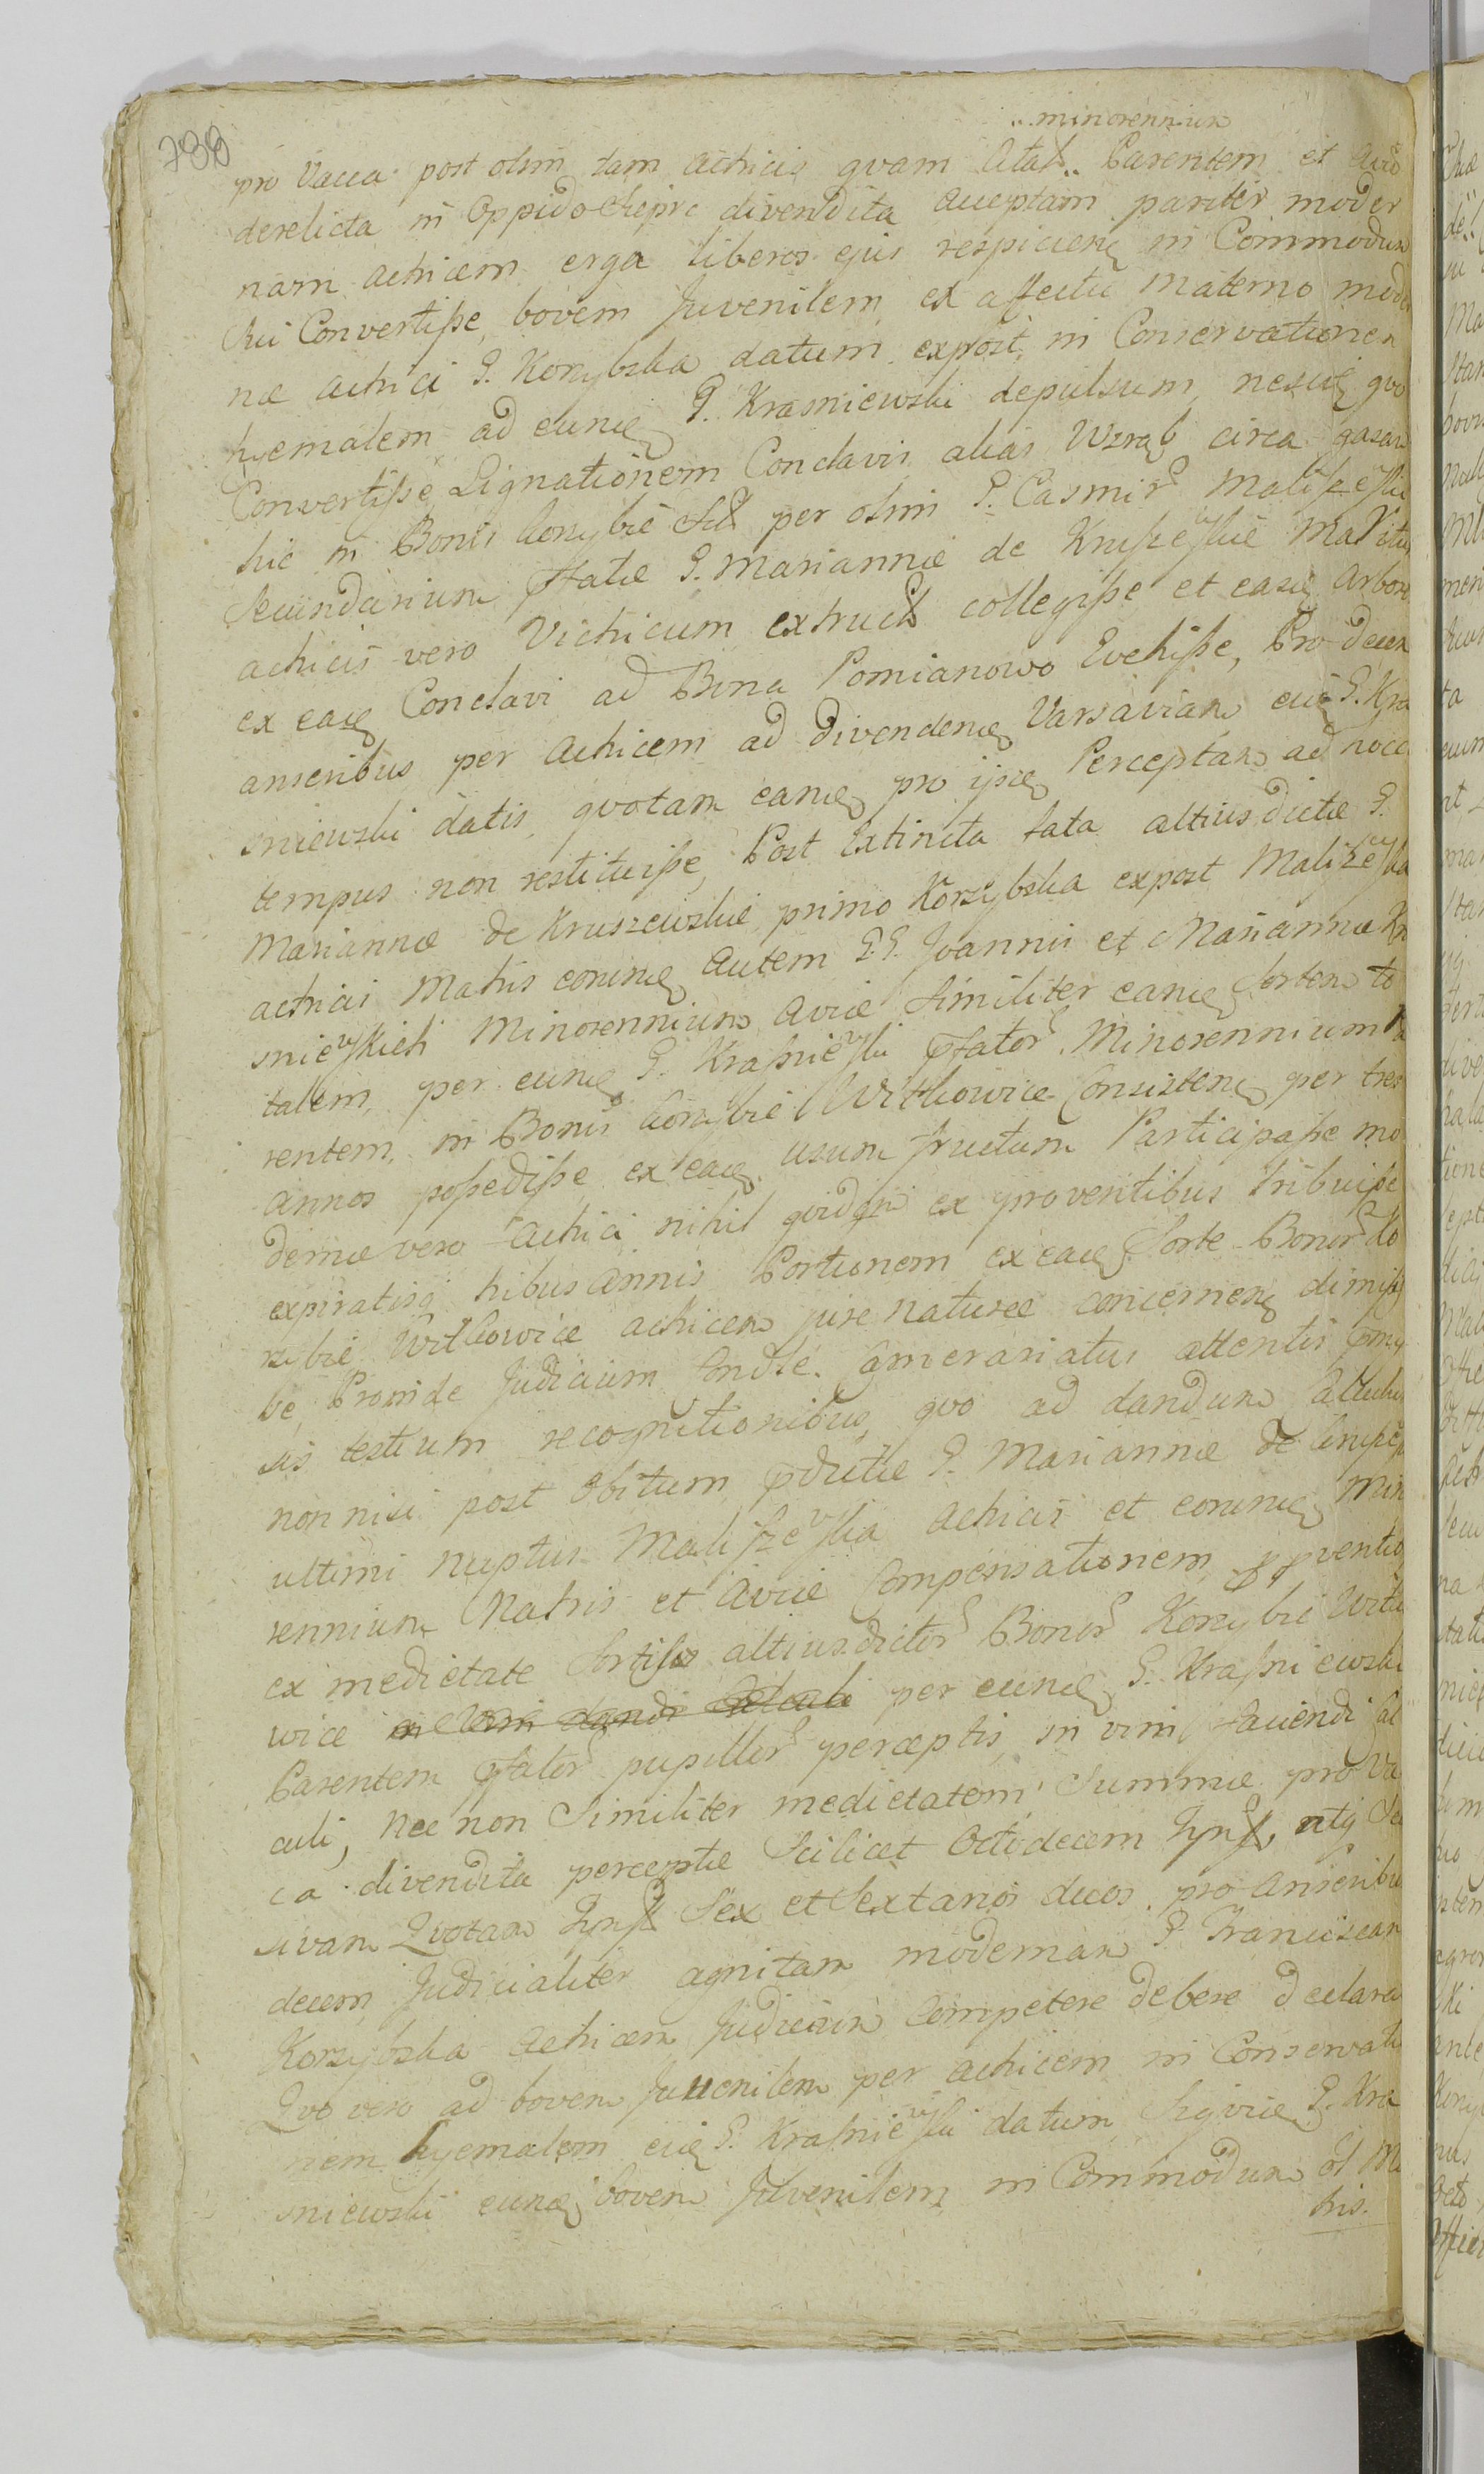 738
minorennium
pro Vacca post olim tam actricis qvam Parentem et
derelicta in Oppido divendita acceptam pariter moder
nam actricem erga liberos ejus respicien in Commodum
Sui Convertiße, bovem Juvenilem ex affectu Materno mode
næ actrici G. Korzybska datum expost in Conservationem
hyemalem ad eunq G. Krasniewski depulsum, qvo
Convertiße, Lignationem Conclavis alias Wzrąb circa
hic in Bonis Korzybie per olim G. Casimir Malißewski
Secundarium Pfatæ G. Mariannæ de Krußewskie Maritum
actricis vero Vitricum extruct collegiße et easq arbores
ex eaq Conclavi ad Bona Pomianowo Evehiße, Pro decem
anseribus per actricem ad divendenq Varsaviam eiq G. Kra
sniewski datis qvotam eanq pro ijsq Perceptam ad hocce
tempus non restituiße, Post Extincta fata altius dictæ G.
Mariannæ de Kruszewskie primo Korzybska expost Malißewska
actricis Matris eorunq autem G.G. Joannis et Mariannæ Kra
sniewskich Minorennium Aviæ Similiter eanq Sortem to
talem, per eunq G. Kraßniewski Pfator Minorennium Pa
rentem in Bonis Korzybie Witkowice Consisten per tres
annos poßediße ex eaq usum fructum Participaße mo
dernæ vero actrici nihil qvidqm ex proventibus tribuiße
expiratisq tribus annis Portionem ex eaq Sorte Bonor Ko
rzybie Witkowice actricem jure naturæ concernen dimisiß
ße, Proinde Judicium Condle. Camerariatus attentis
sis testium recognitionibus, qvo ad dandum Calculum
non nisi post Obitum Pdictæ G. Mariannæ de Krußew
ultimi Nuptus Malißewska actricis et eorunq Mino
rennium Matris et Aviæ Compensationem proventib
ex medietate Sortis altius dictor Bonor Korzybie Witko
wice per eunq G. Kraßniewski
Parentem Pfator pupillor perceptis, in vim faciendi Cal
culi, Nec non Similiter medietatem Summæ pro Va
ca divendita perceptæ Scilicet Octodecem utq
sivam Qvotam Sex et Sextanos duos pro Anseribus
decem Judicialiter agnitam modernam G. Franciscam
Korzybska Actricem Judicium Competere debere declarat
Qvo vero ad bovem Juvenilem per actricem in Conservatio
nem hyemalem eiq G. Kraßniewski datum Siqvid G. Kra
sniewski eunq bovem Juvenilem in Commodum
tris.